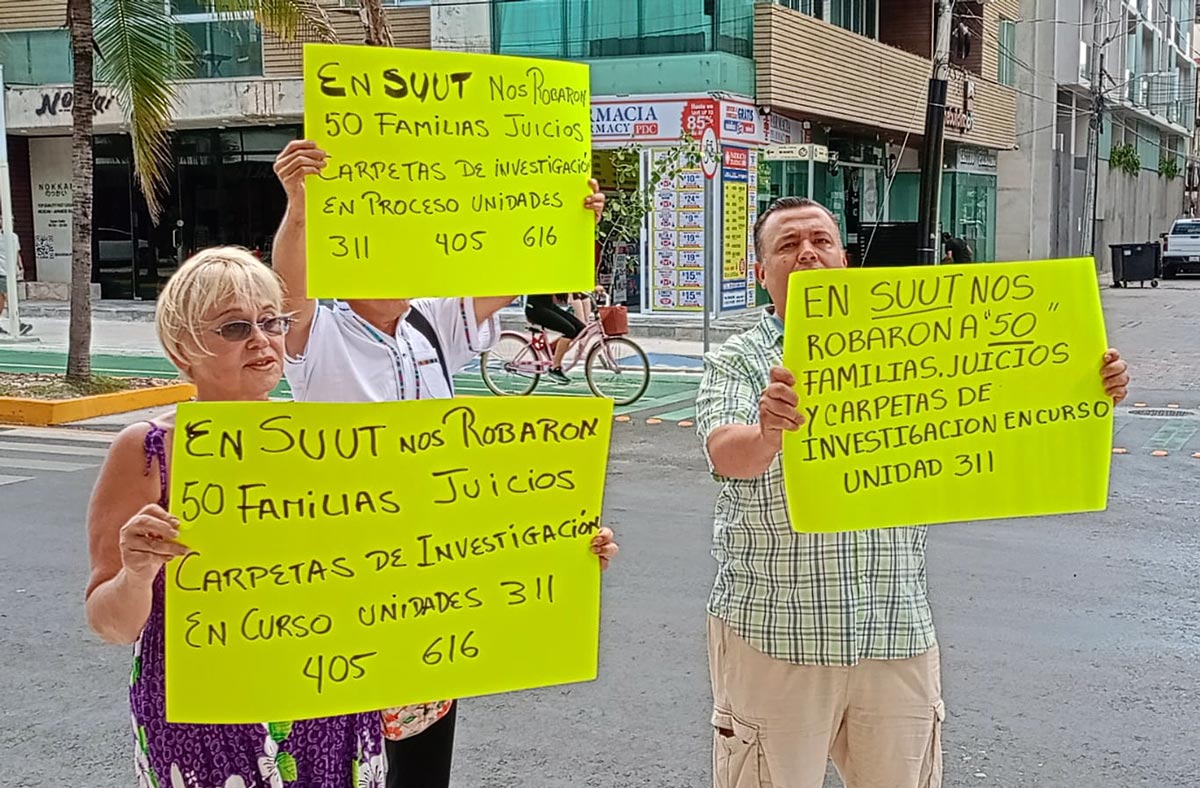 EN SUUT NOS ROBARON
50 FAMILIAS JUICIOS
CARPETAS DE INVESTIGACIÓN
EN PROCESO UNIDADES
311 405 616
EN SUUT NOS ROBARON
50 FAMILIAS JUICIOS
CARPETAS DE INVESTIGACIÓN
EN CURSO UNIDADES 311
405 616
EN SUUT NOS
ROBARON A "50"
FAMILIAS. JUICIOS
Y CARPETAS DE
INVESTIGACION EN CURSO
UNIDAD 311
FARMACIA
PDC
85%
GRATIS
NOKKAI